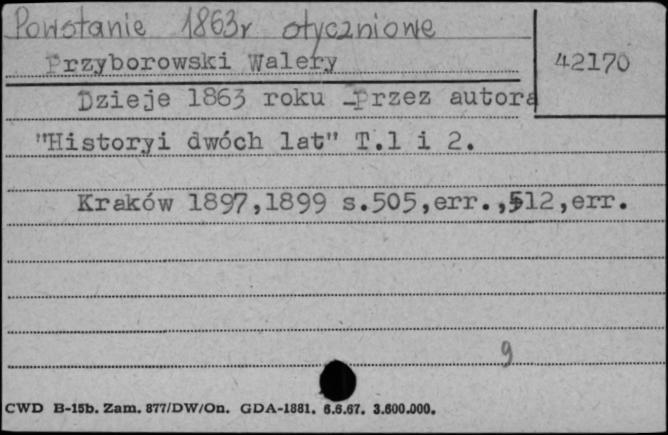 Powstanie 1863r styczniowe
Przyborowski Walery
42170
Dzieje 1863 roku -przez autora
"Historyi dwóch lat" T.1 i 2.
Kraków 1897,1899 s.505,err.,512,err.
9
CWD B-15b. Zam. 877/DW/On. GDA-1881. 6.6.67. 3.600.000.